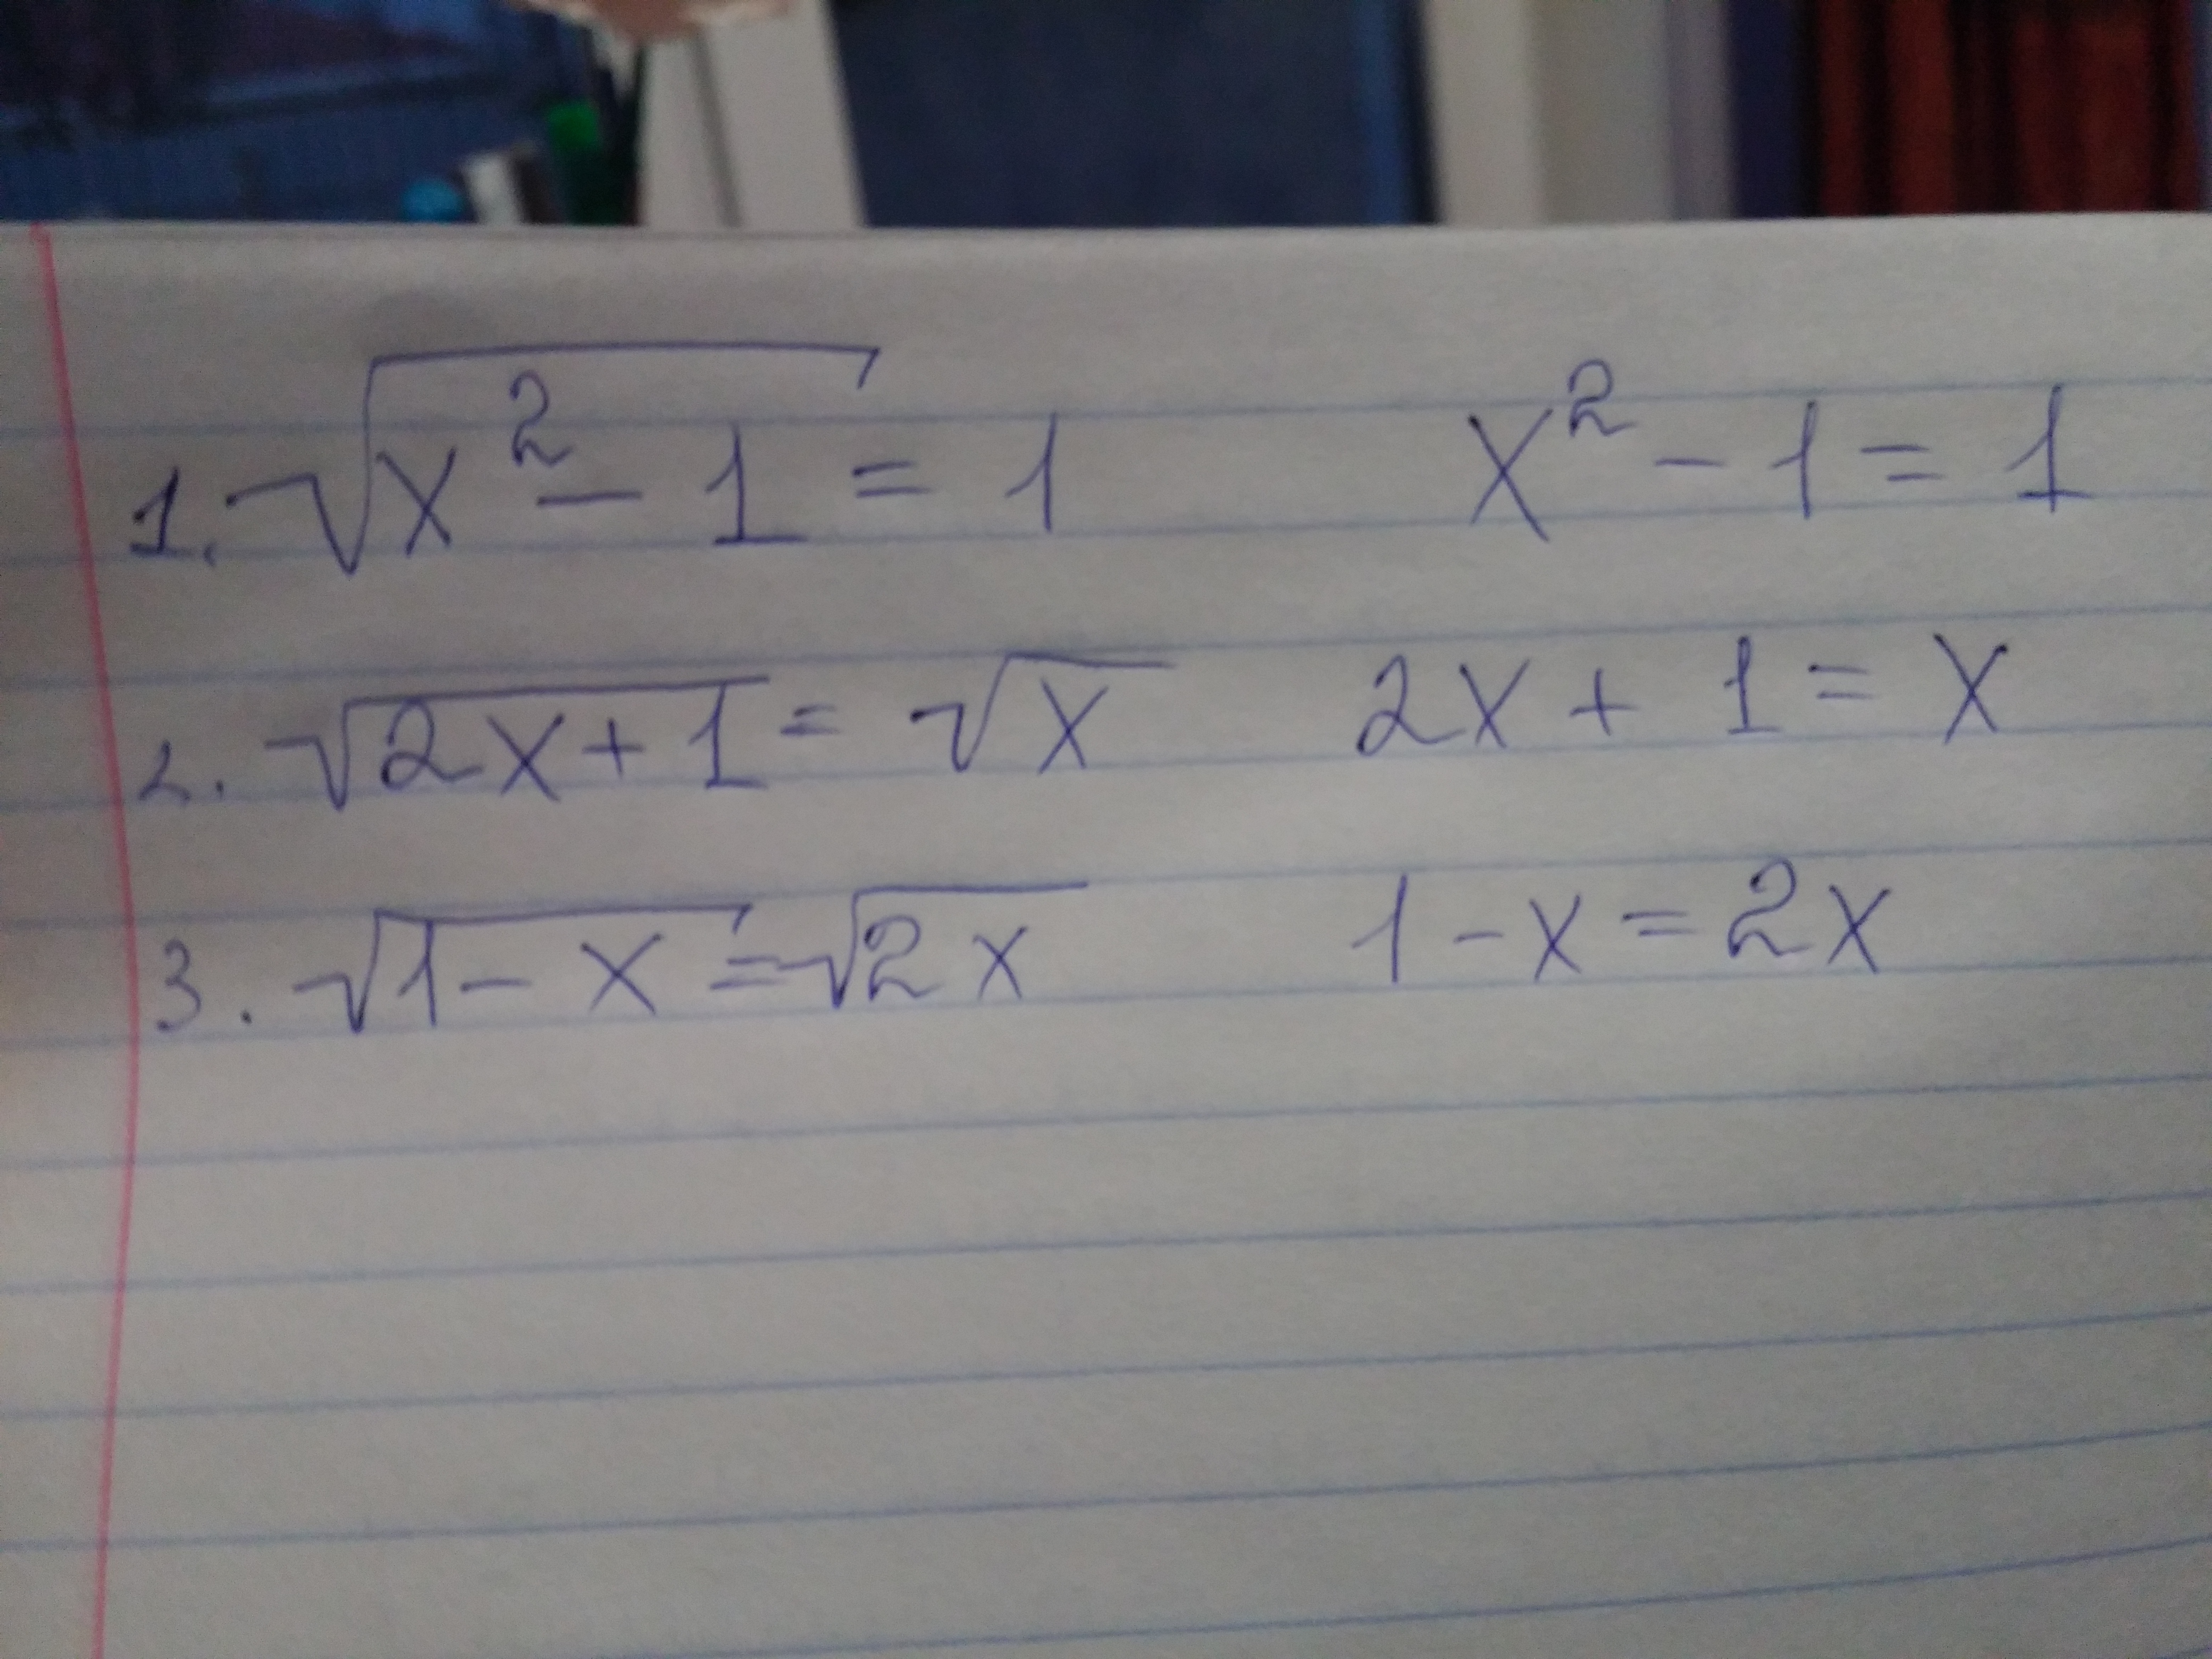 1. √(x² - 1) = 1    x² - 1 = 1
2. √(2x + 1) = √x    2x + 1 = x
3. √(1 - x) = √(2x)    1 - x = 2x